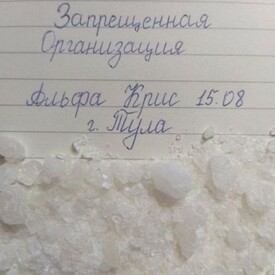 Запрещенная
Организация
Альфа Крис 15.08
г. Тула